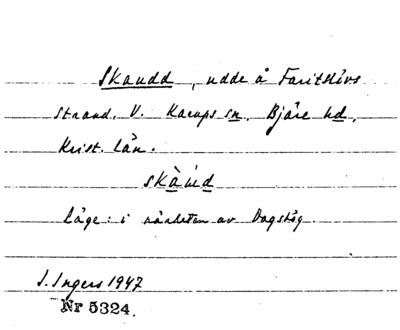 Skaudd, udde å Faritslövs
strand, V. Karups sn. Bjäre hd,
Krist. län.
skàu̇d
Läge: i närheten av Dagshög.
I. Ingers 1947
Nr 5324.